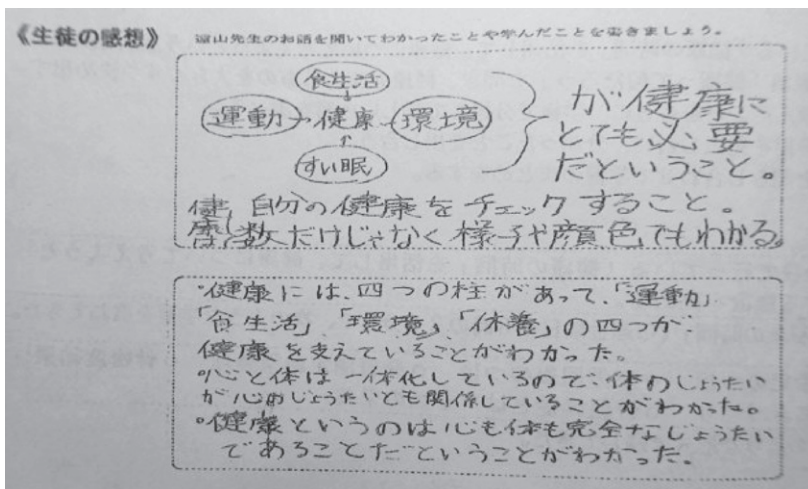 《生徒の感想》 遠山先生のお話を聞いてわかったことや学んだことを書きましょう。
食生活
運動→健康←環境
すい眠
が健康に
とても必要
だということ。
自分の健康をチェックすること。
数だけじゃなく様子や顔色でもわかる。
・健康には、四つの柱があって、「運動」
「食生活」、「環境」、「休養」の四つが
健康を支えていることがわかった。
・心と体は一体化しているので、体のじょうたい
が心のじょうたいとも関係していることがわかった。
・健康というのは心も体も完全なじょうたい
であることだということがわかった。